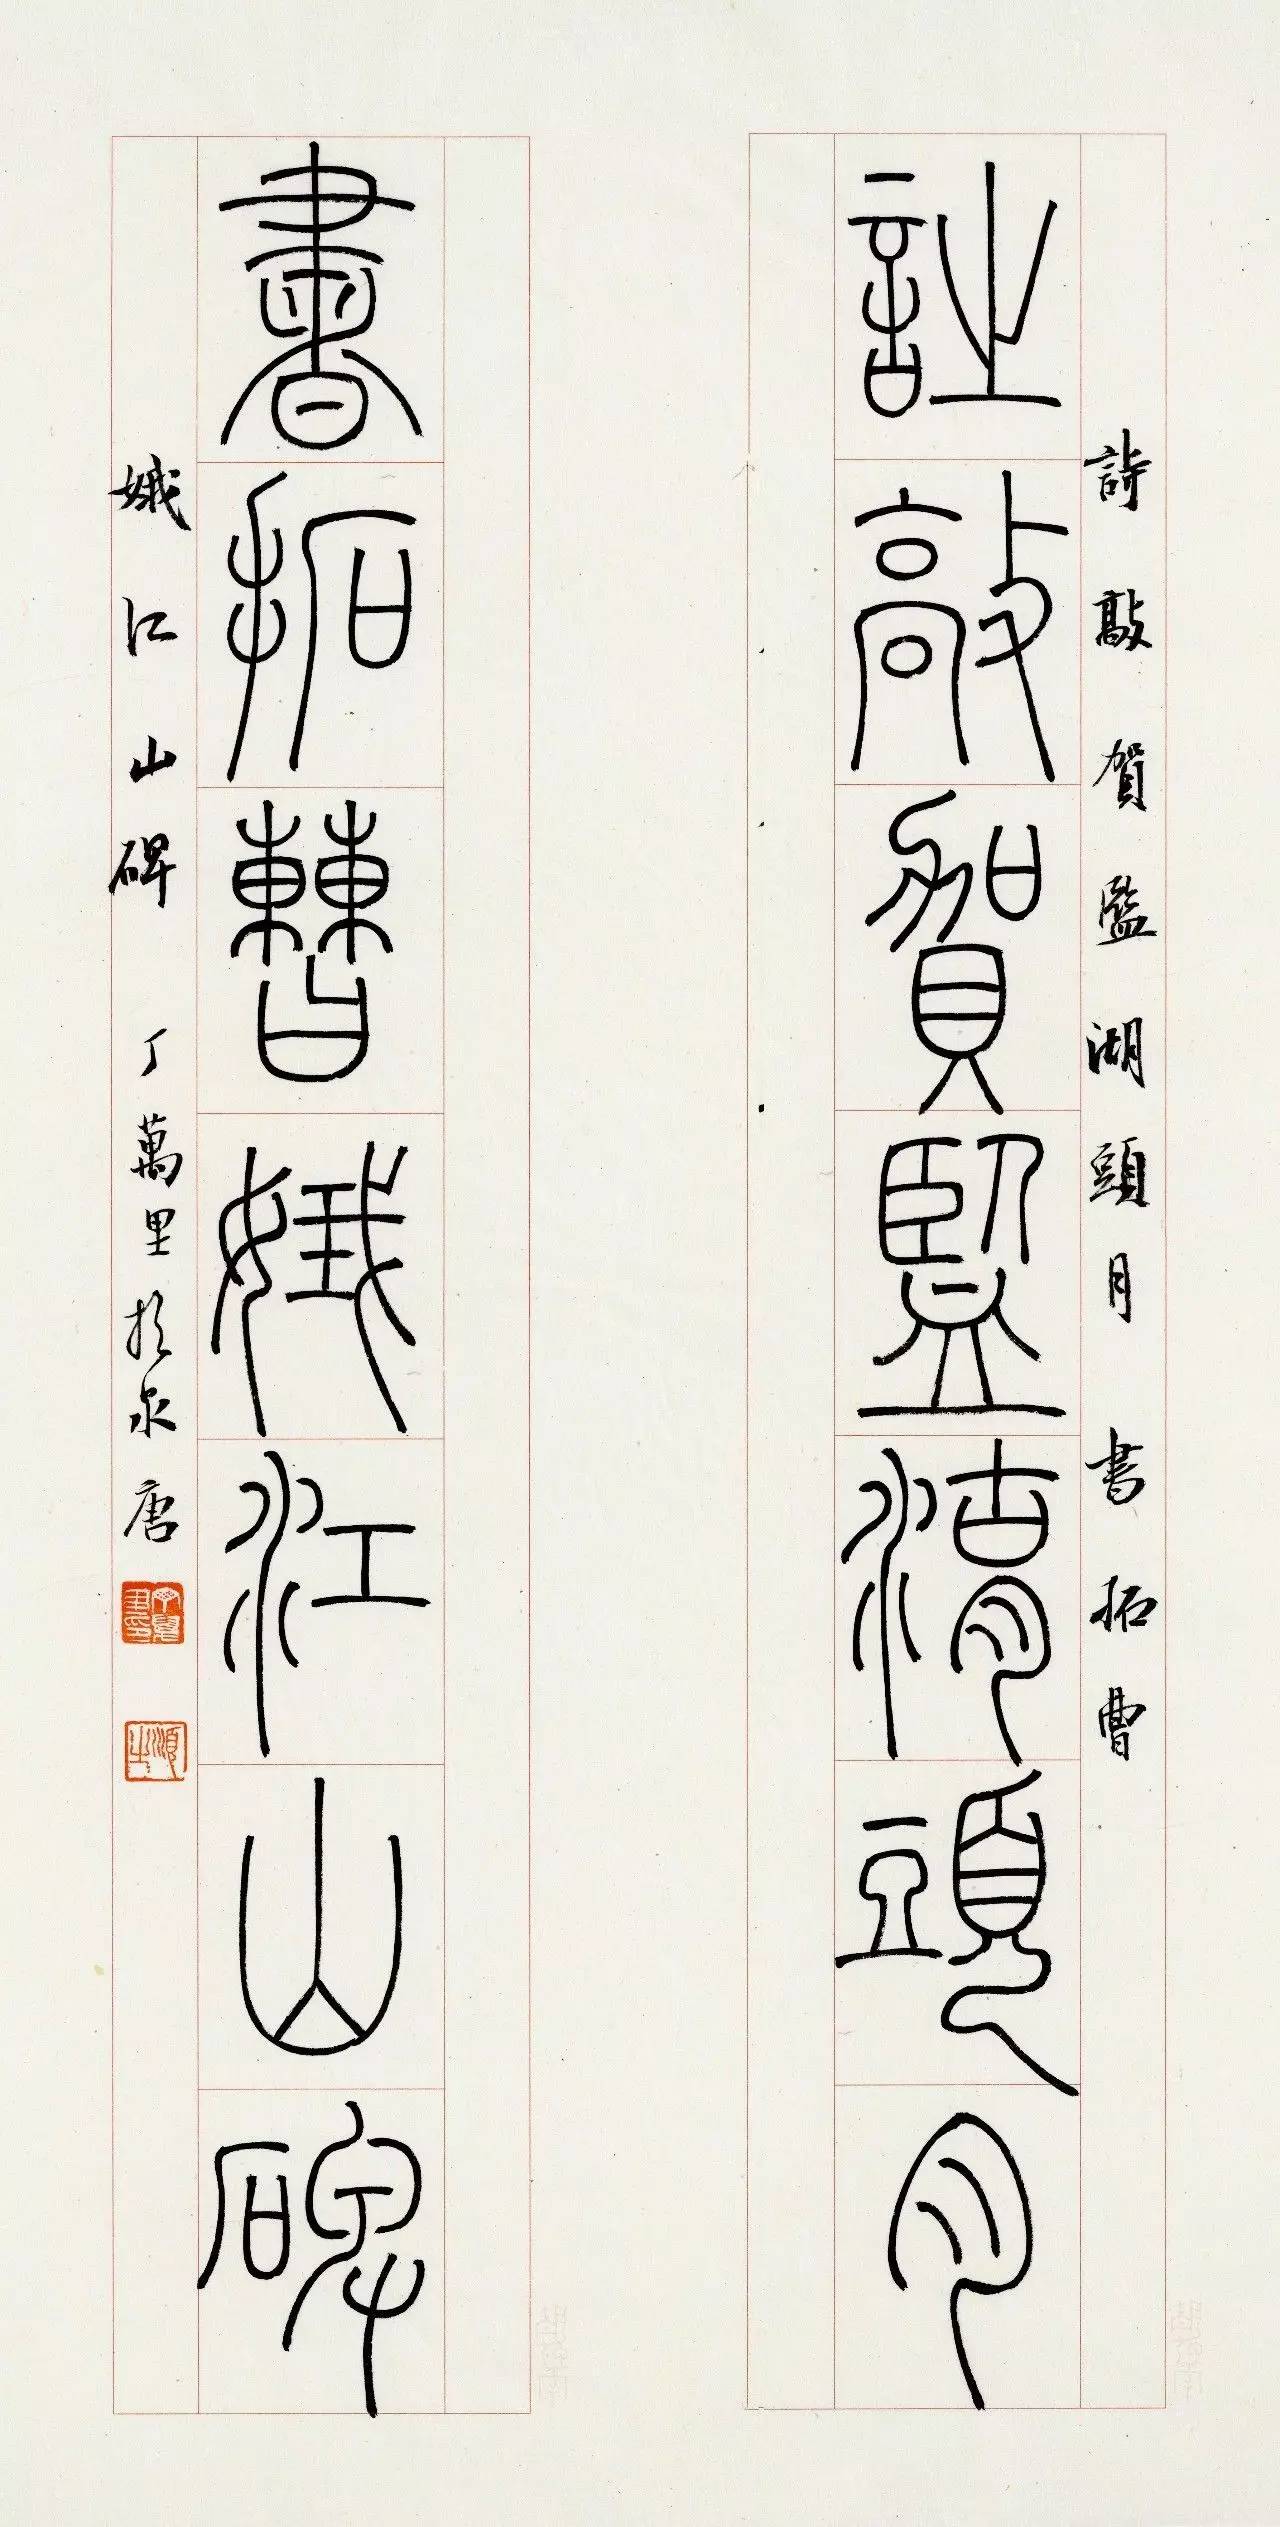 詩敲賀監湖頭月
詩敲賀監湖頭月 書拓曹
書拓曹娥江山碑
娥江山碑 丁萬里於泉唐